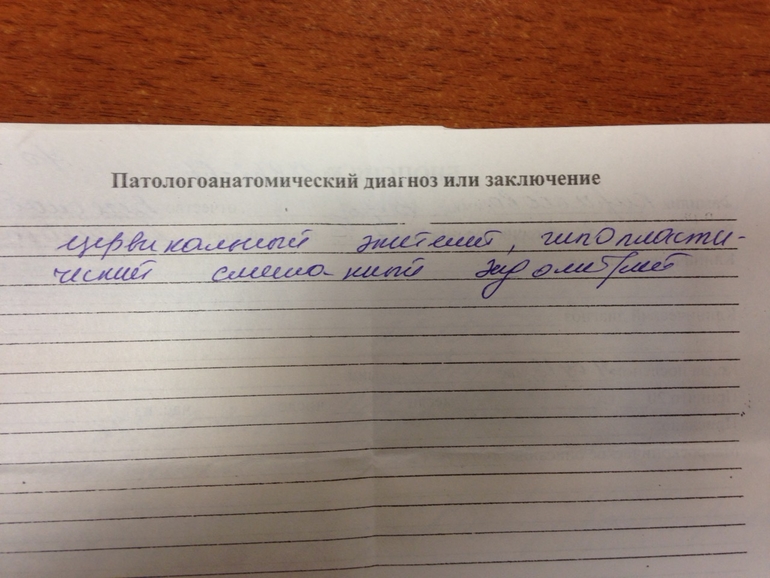 Патологоанатомический диагноз или заключение
цервикальный эпителий, гипопласти-
ческий смеша-нный эндометрий